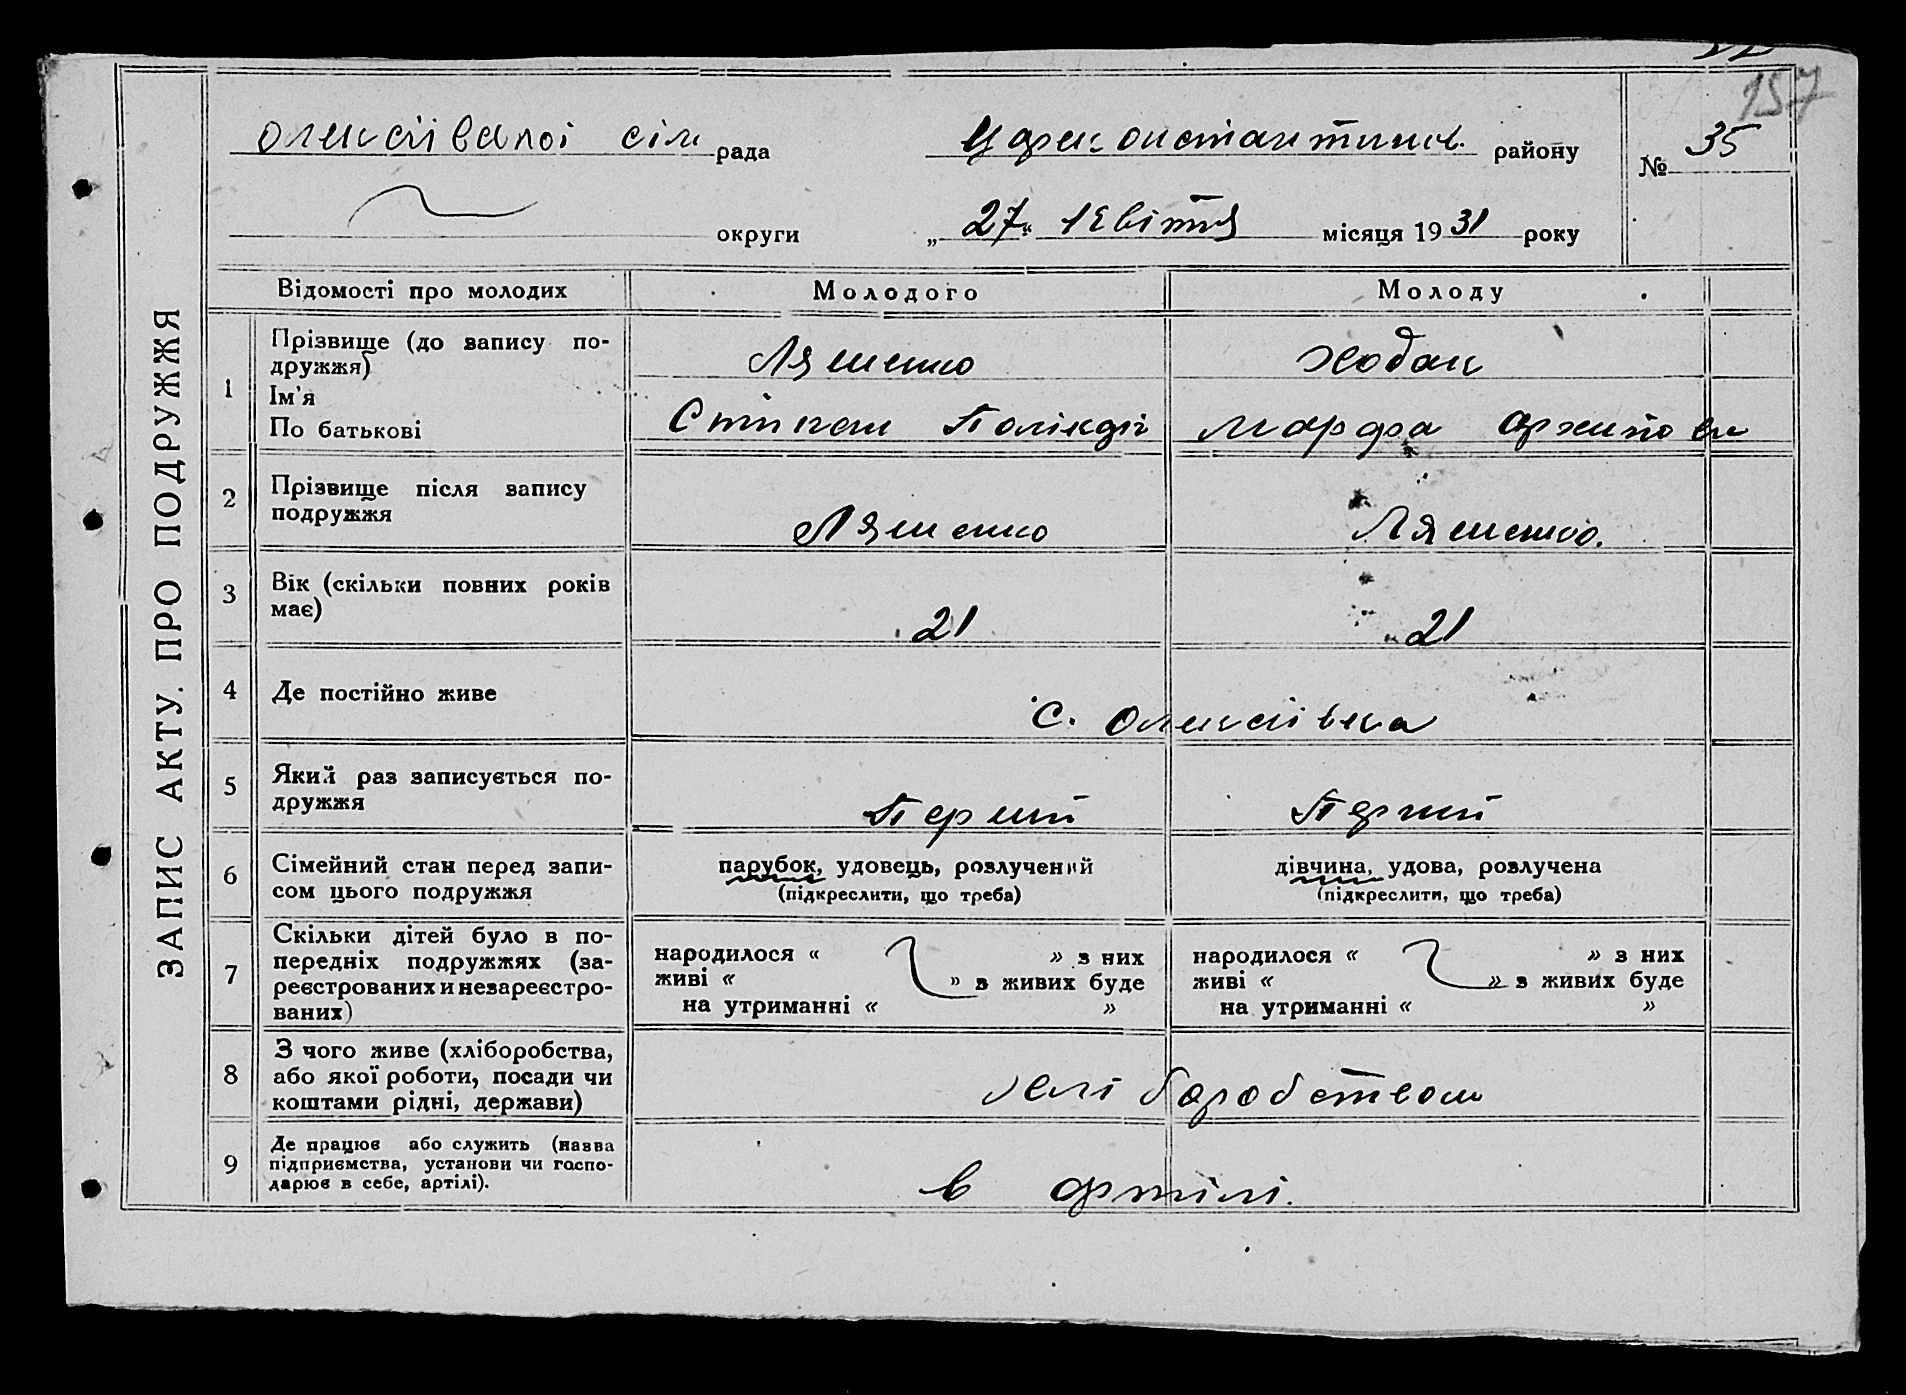 157
ЗАПИС АКТУ. ПРО ПОДРУЖЖЯ
Олексіївської сіл рада Царекостянтинів. району № 35
округи „27“ квітня місяця 1931 року
Відомості про молодих Молодого Молоду
1 Прізвище (до запису по-
дружжя) Ляшенко Ходак
Ім'я
По батькові Марфа Архипова
2 Прізвище після запису
подружжя Ляшенко Ляшенко.
3 Вік (скільки повних років
має) 21 21
4 Де постійно живе С. Олексіівка
5 Який раз записується по-
дружжя Перший Перший
6 Сімейний стан перед запи- парубок, удовець, розлучений дівчина, удова, розлучена
сом цього подружжя (підкреслити, що треба) (підкреслити, що треба)
7 Скільки дітей було в по-
передніх подружжях (за-
реєстрованих и незареєстро-
ваних)
народилося « » з них народилося « » з них
живі « » з живих буде живі « » з живих буде
на утриманні « » на утриманні « »
8 З чого живе (хліборобства,
або якої роботи, посади чи
коштами рідні, держави) хліборобством
9 Де працює або служить (назва
підприємства, установи чи госпо-
дарює в себе, артілі). в артілі.